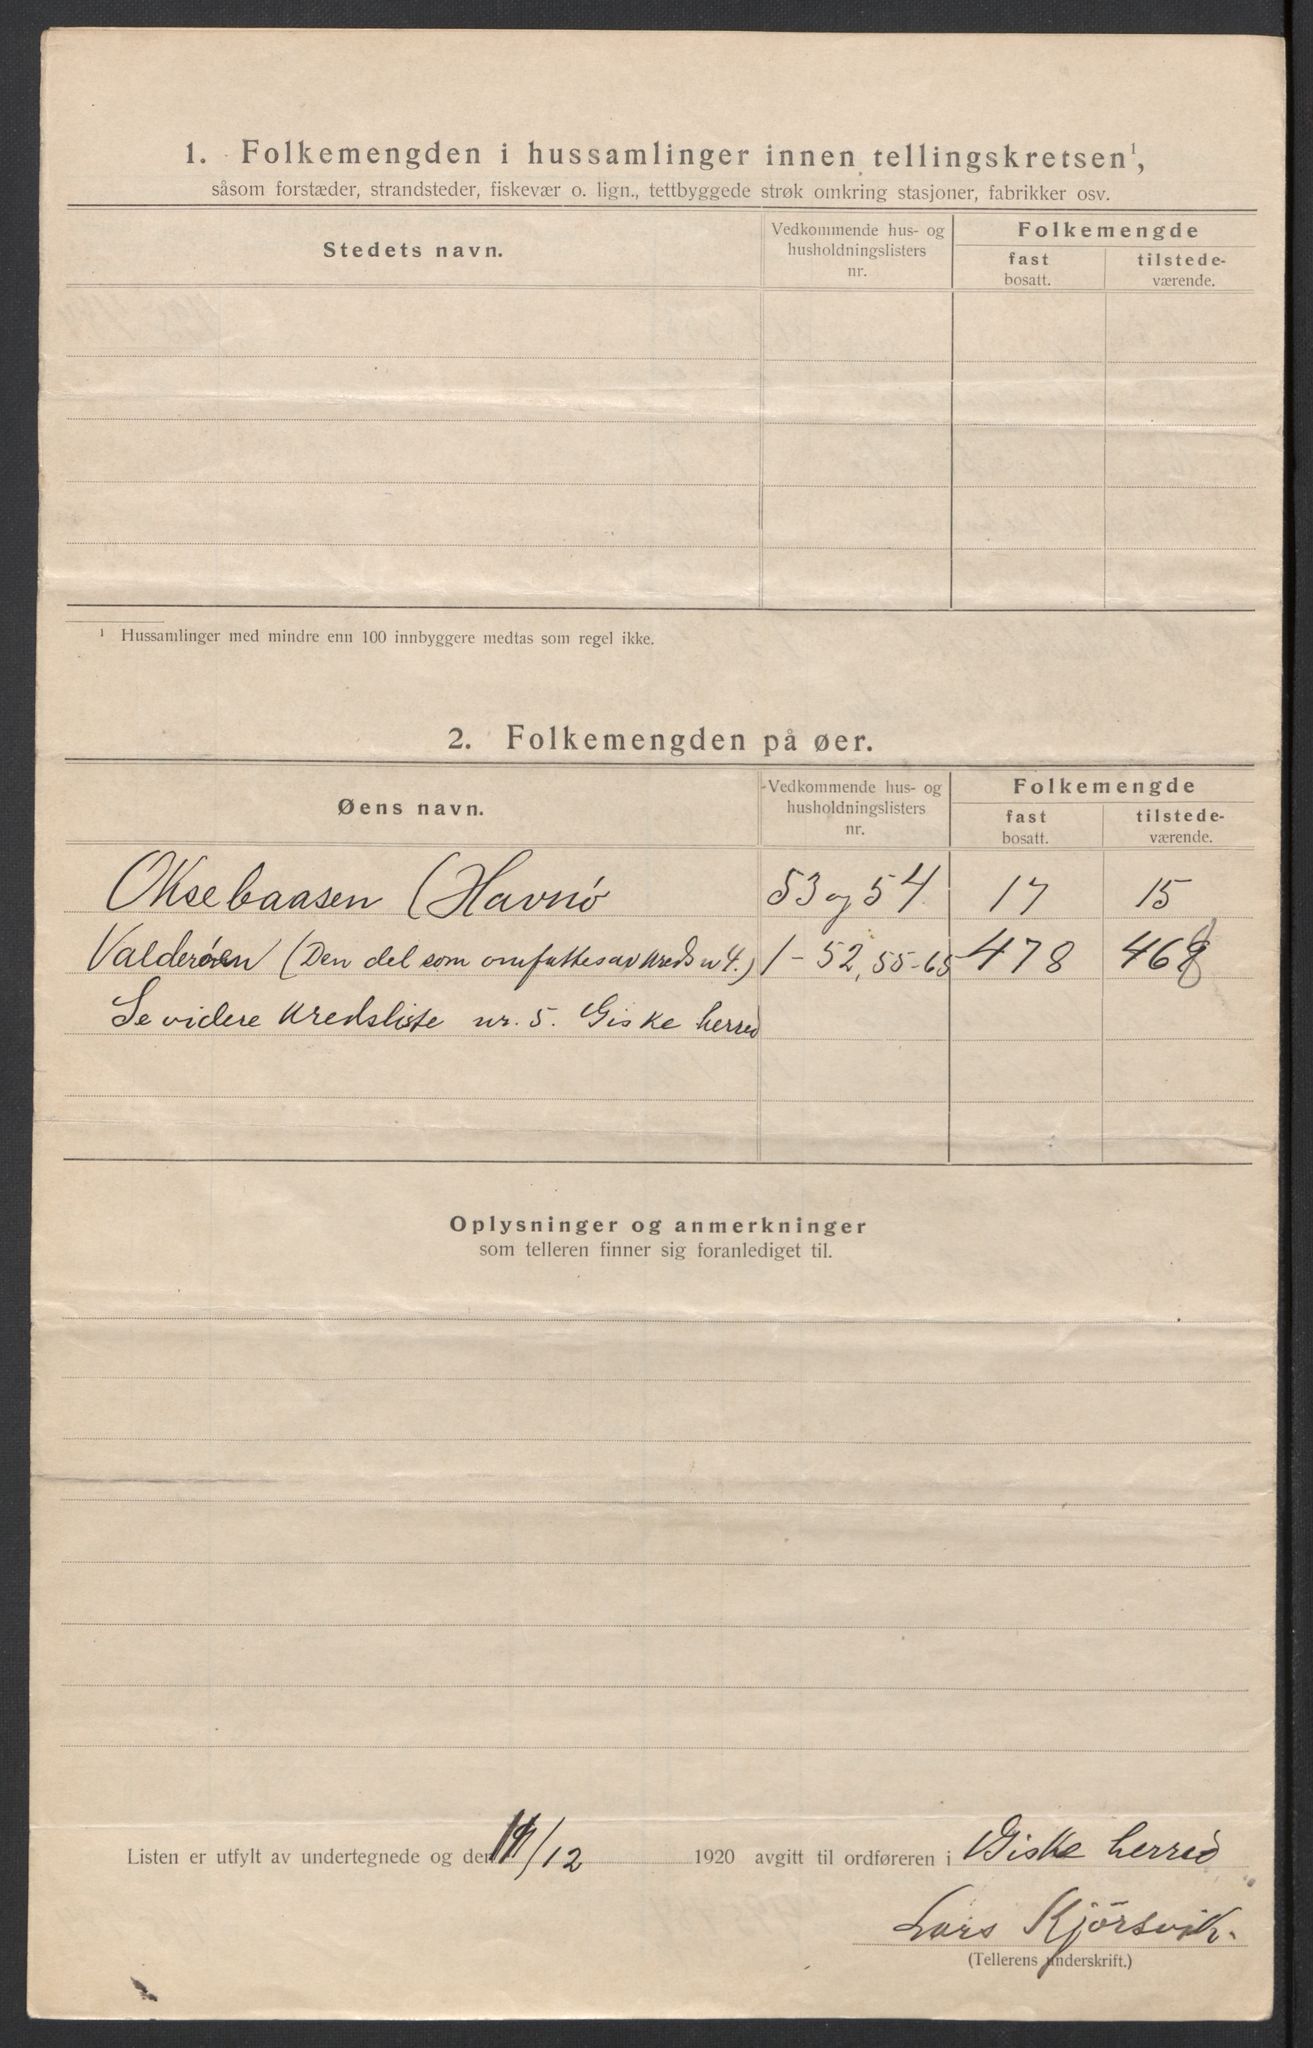 1. Folkemengden i hussamlinger innen tellingskretsen¹,
såsom forstæder, strandsteder, fiskevær o. lign., tettbyggede strøk omkring stasjoner, fabrikker osv.
Stedets navn.
Vedkommende hus- og husholdningslisters nr.
Folkemengde
fast bosatt.
tilstedeværende.
¹ Hussamlinger med mindre enn 100 innbyggere medtas som regel ikke.
2. Folkemengden på øer.
Øens navn.
Vedkommende hus- og husholdningslisters nr.
Folkemengde
fast bosatt.
tilstedeværende.
Oksebaasen (Havnø 53 og 54 17 15
Valderøen (Den del som omfattes av kreds nr 4.) 1-52, 55-65 478 468
Se videre kredsliste nr. 5. Giske herred
Oplysninger og anmerkninger
som telleren finner sig foranlediget til.
Listen er utfylt av undertegnede og den /12 1920 avgitt til ordføreren i Giske herred
Lars Kjørsvik.
(Tellerens underskrift.)